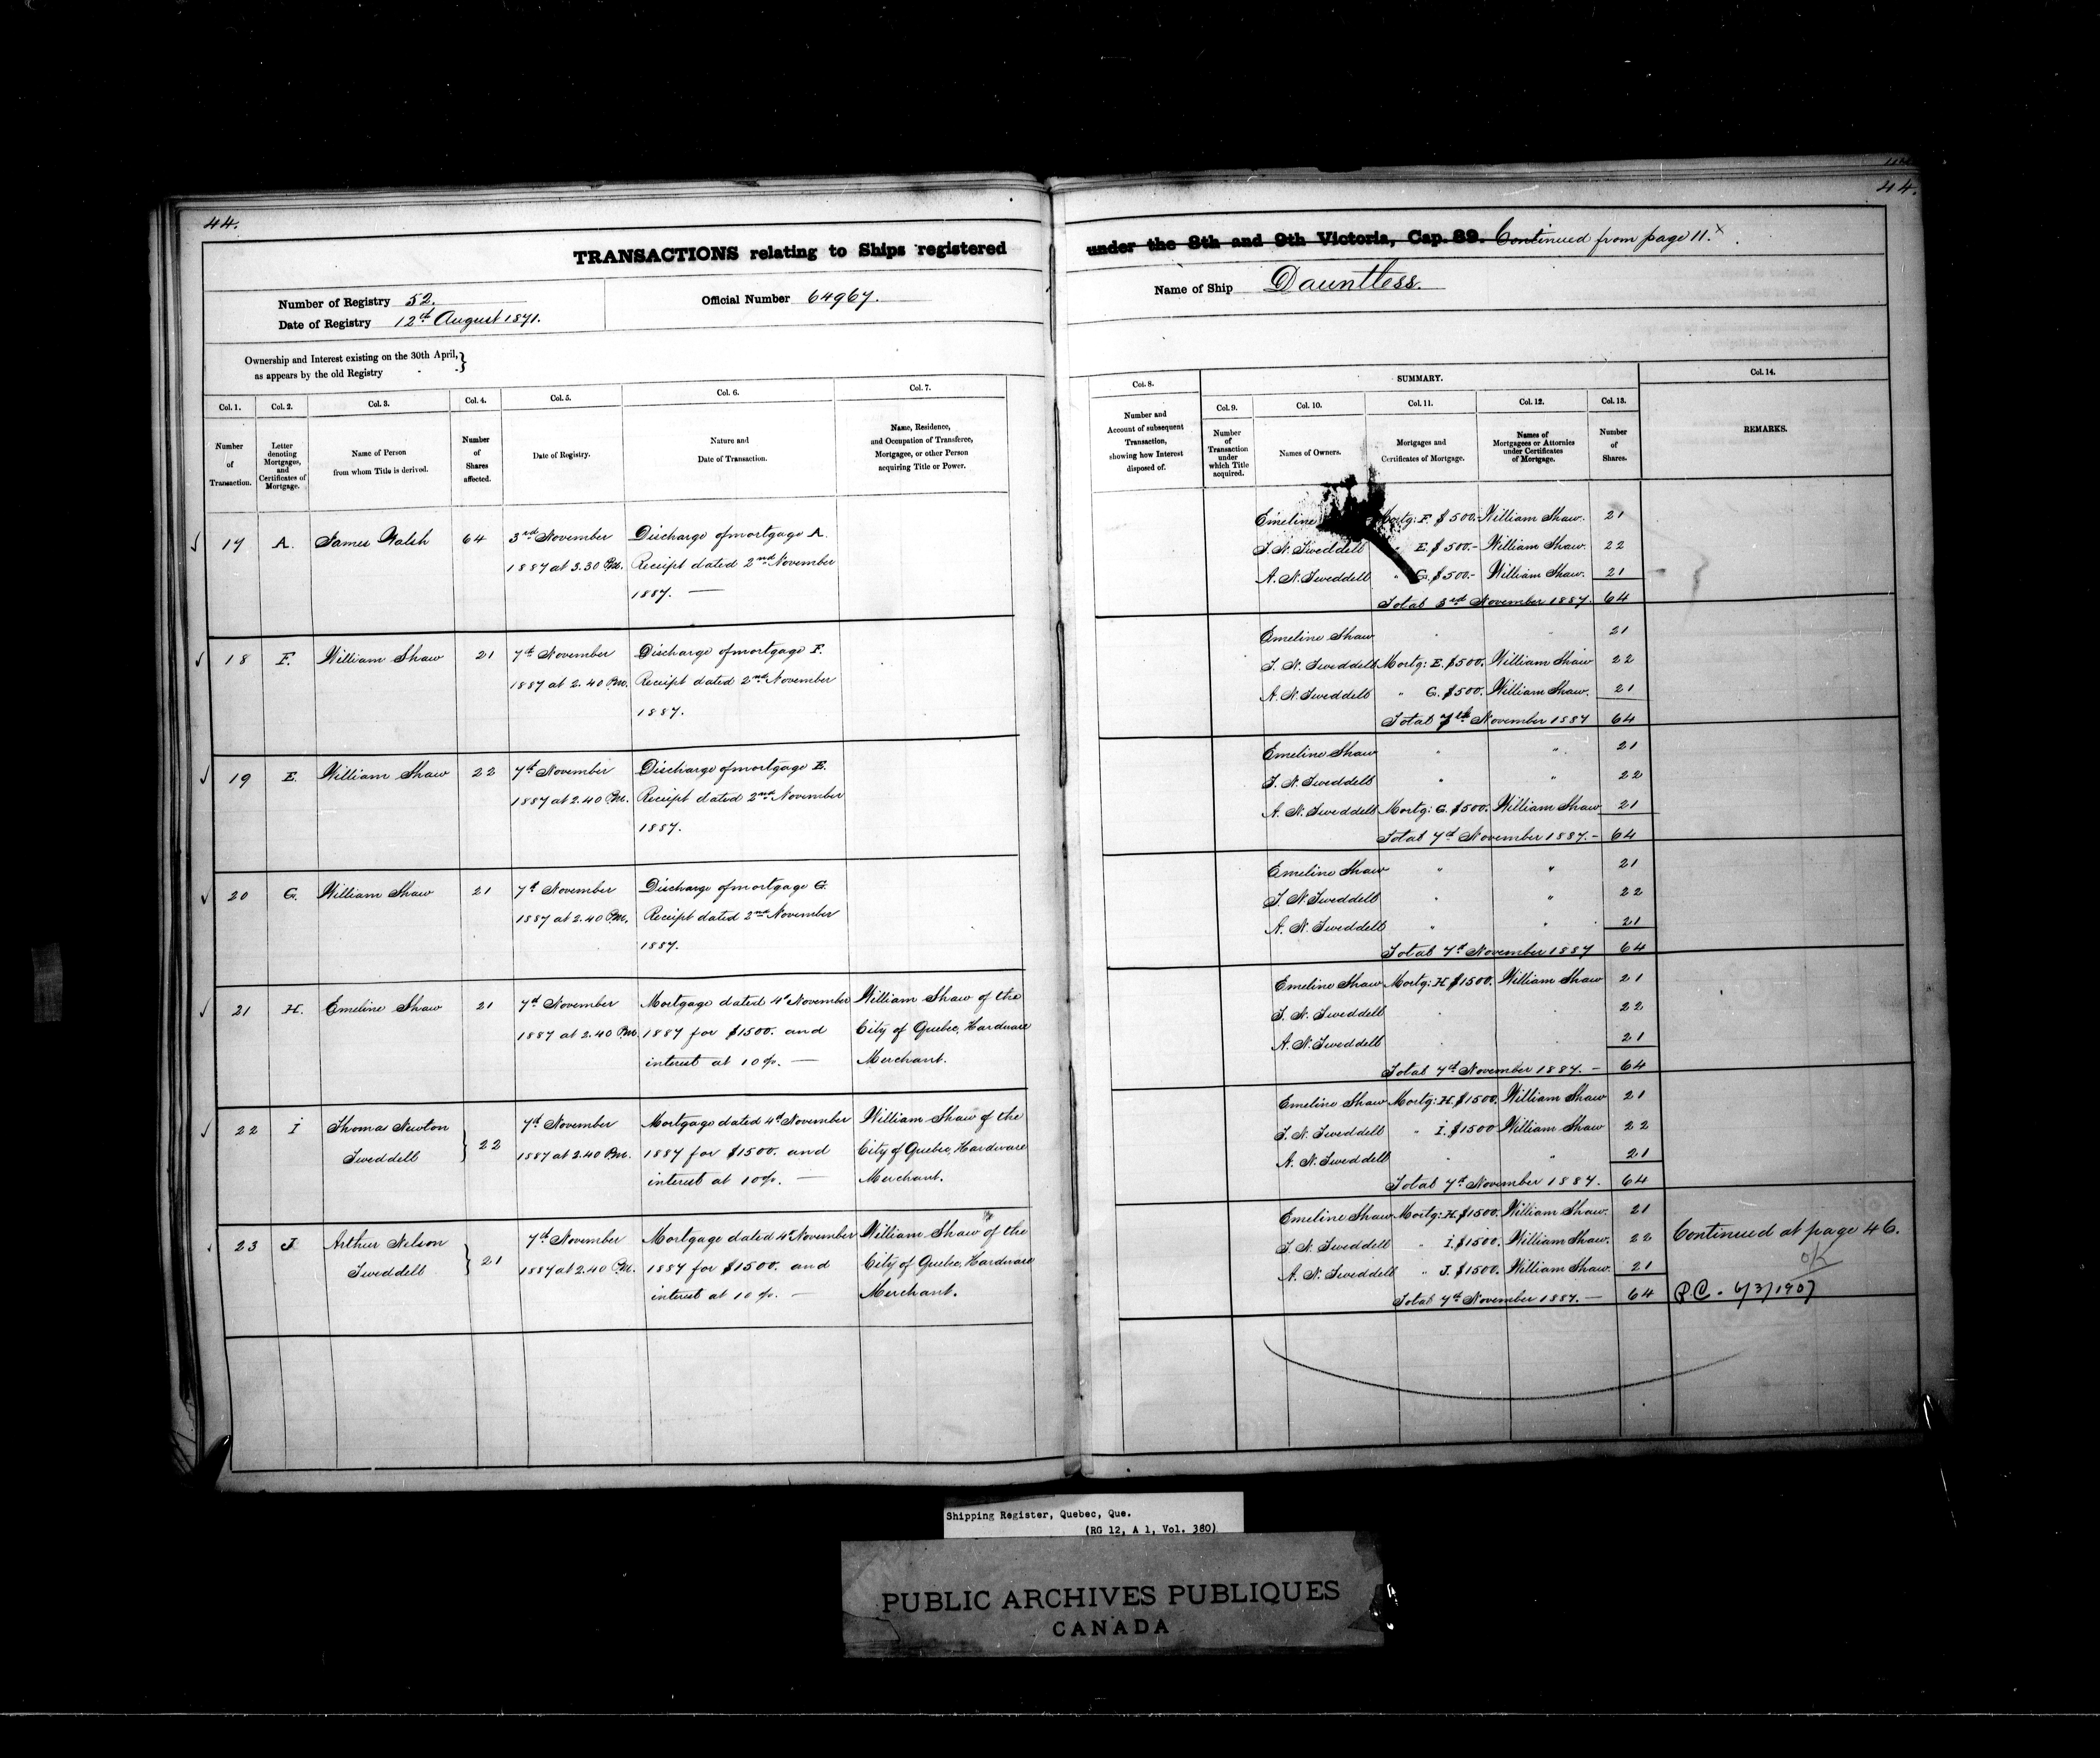 44.
44.
TRANSACTIONS relating to Ships registered under the 8th and 9th Victoria, Cap. 89. Continued from page 11.x
Number of Registry 52.
Official Number 64967.
Name of Ship Dauntless.
Date of Registry 12th August 1871.
Ownership and Interest existing on the 30th April,
as appears by the old Registry
Col. 1.
Number
of
Transaction.
Col. 2.
Letter
denoting
Mortgages,
and
Certificates of
Mortgage.
Col. 3.
Name of Person
from whom Title is derived.
Col. 4.
Number
of
Shares
affected.
Col. 5.
Date of Registry.
Col. 6.
Nature and
Date of Transaction.
Col. 7.
Name, Residence,
and Occupation of Transferee,
Mortgagee, or other Person
acquiring Title or Power.
Col. 8.
Number and
Account of subsequent
Transaction,
showing how Interest
disposed of.
SUMMARY.
Col. 9.
Number
of
Transaction
under
which Title
acquired.
Col. 10.
Names of Owners.
Col. 11.
Mortgages and
Certificates of Mortgage.
Col. 12.
Names of
Mortgagees or Attornies
under Certificates
of Mortgage.
Col. 13.
Number
of
Shares.
Col. 14.
REMARKS.
17 A. James Walsh 64 3rd November Discharge of mortgage A.
1887 at 3.30 P.M. Receipt dated 2nd November
1887. —
Emeline Mortg: F. $500.- William Shaw. 21
T. N. Tweddell " E. $500.- William Shaw. 22
A. N. Tweddell " G. $500- William Shaw. 21
Total 3rd November 1887. 64
18 F. William Shaw 21 7th November Discharge of mortgage F.
1887 at 2.40 P.M. Receipt dated 2nd November
1887.
Emeline Shaw " " 21
T. N. Tweddell Mortg: E. $500. William Shaw 22
A. N. Tweddell " G. $500. William Shaw. 21
Total 7th November 1887 64
19 E. William Shaw 22 7th November Discharge of mortgage E.
1887 at 2.40 P.M. Receipt dated 2nd November
1887.
Emeline Shaw " " 21
T. N. Tweddell " " 22
A. N. Tweddell Mortg: G. $500. William Shaw 21
Total 7th November 1887. - 64
20 G. William Shaw 21 7th November Discharge of mortgage G.
1887 at 2.40 P.M. Receipt dated 2nd November
1887.
Emeline Shaw " " 21
T. N. Tweddell " " 22
A. N. Tweddell " " 21
Total 7th November 1887 64
21 H. Emeline Shaw 21 7th November Mortgage dated 4th November William Shaw of the
1887 at 2.40 P.M. 1887 for $1500. and City of Quebec, Hardware
interest at 10 %. — Merchant.
Emeline Shaw Mortg: H $1500. William Shaw 21
T. N. Tweddell " " 22
A. N. Tweddell " " 21
Total 7th November 1887. - 64
22 I Thomas Newton 22 7th November Mortgage dated 4th November William Shaw of the
Tweddell 1887 at 2.40 P.M. 1887 for $1500. and City of Quebec, Hardware
interest at 10 %. — Merchant.
Emeline Shaw Mortg: H. $1500. William Shaw 21
T. N. Tweddell " I. $1500 William Shaw 22
A. N. Tweddell " " 21
Total 7th November 1887. 64
23 J Arthur Nelson 21 7th November Mortgage dated 4th November William Shaw of the
Tweddell 1887 at 2.40 P.M. 1887 for $1500. and City of Quebec, Hardware
interest at 10 %. — Merchant.
Emeline Shaw Mortg: H. $1500. William Shaw. 21
T. N. Tweddell " I. $1500. William Shaw. 22
A. N. Tweddell " J. $1500. William Shaw. 21
Total 7th November 1887. — 64
Continued at page 46.
OK
P.C. - 6/3/1907
Shipping Register, Quebec, Que.
(RG 12, A 1, Vol. 380)
PUBLIC ARCHIVES PUBLIQUES
CANADA